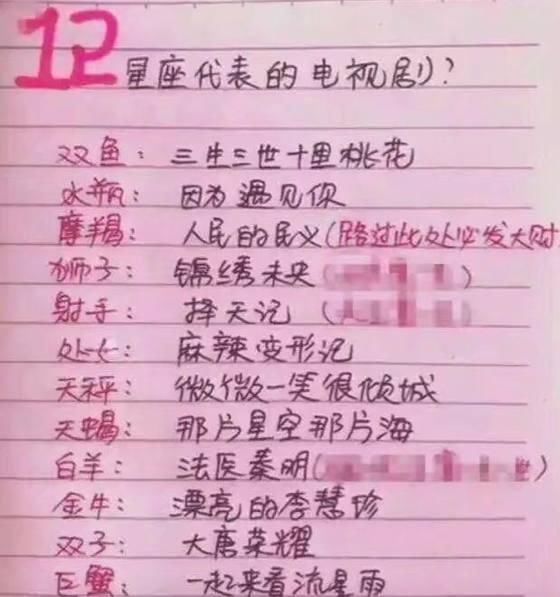 12星座代表的电视剧?
双鱼：三生三世十里桃花
水瓶：因为遇见你
摩羯：人民的民义(路过此处必发大财
狮子：锦绣未央( )
射手：择天记( )
处女：麻辣变形记
天秤：微微一笑很倾城
天蝎：那片星空那片海
白羊：法医秦明( )
金牛：漂亮的李慧珍
双子：大唐荣耀
巨蟹：一起来看流星雨